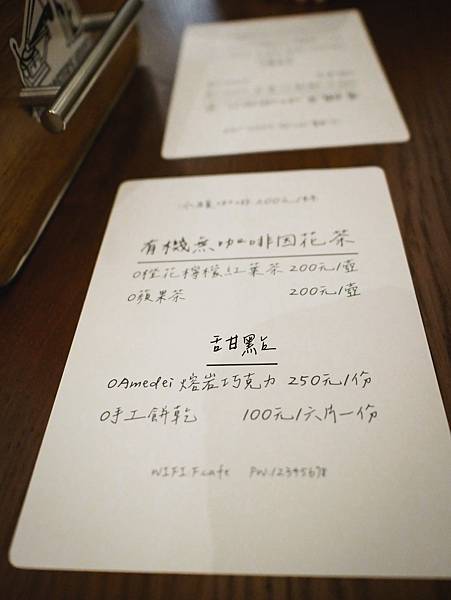 冰釀咖啡 200元/杯
有機無咖啡因花茶
O橙花檸檬紅葉茶 200元/壺
O蘋果茶 200元/壺
甜點
OAmedei 熔岩巧克力 250元/份
O手工餅乾 100元/六片一份
WIFI.Fcafe PW.12345678